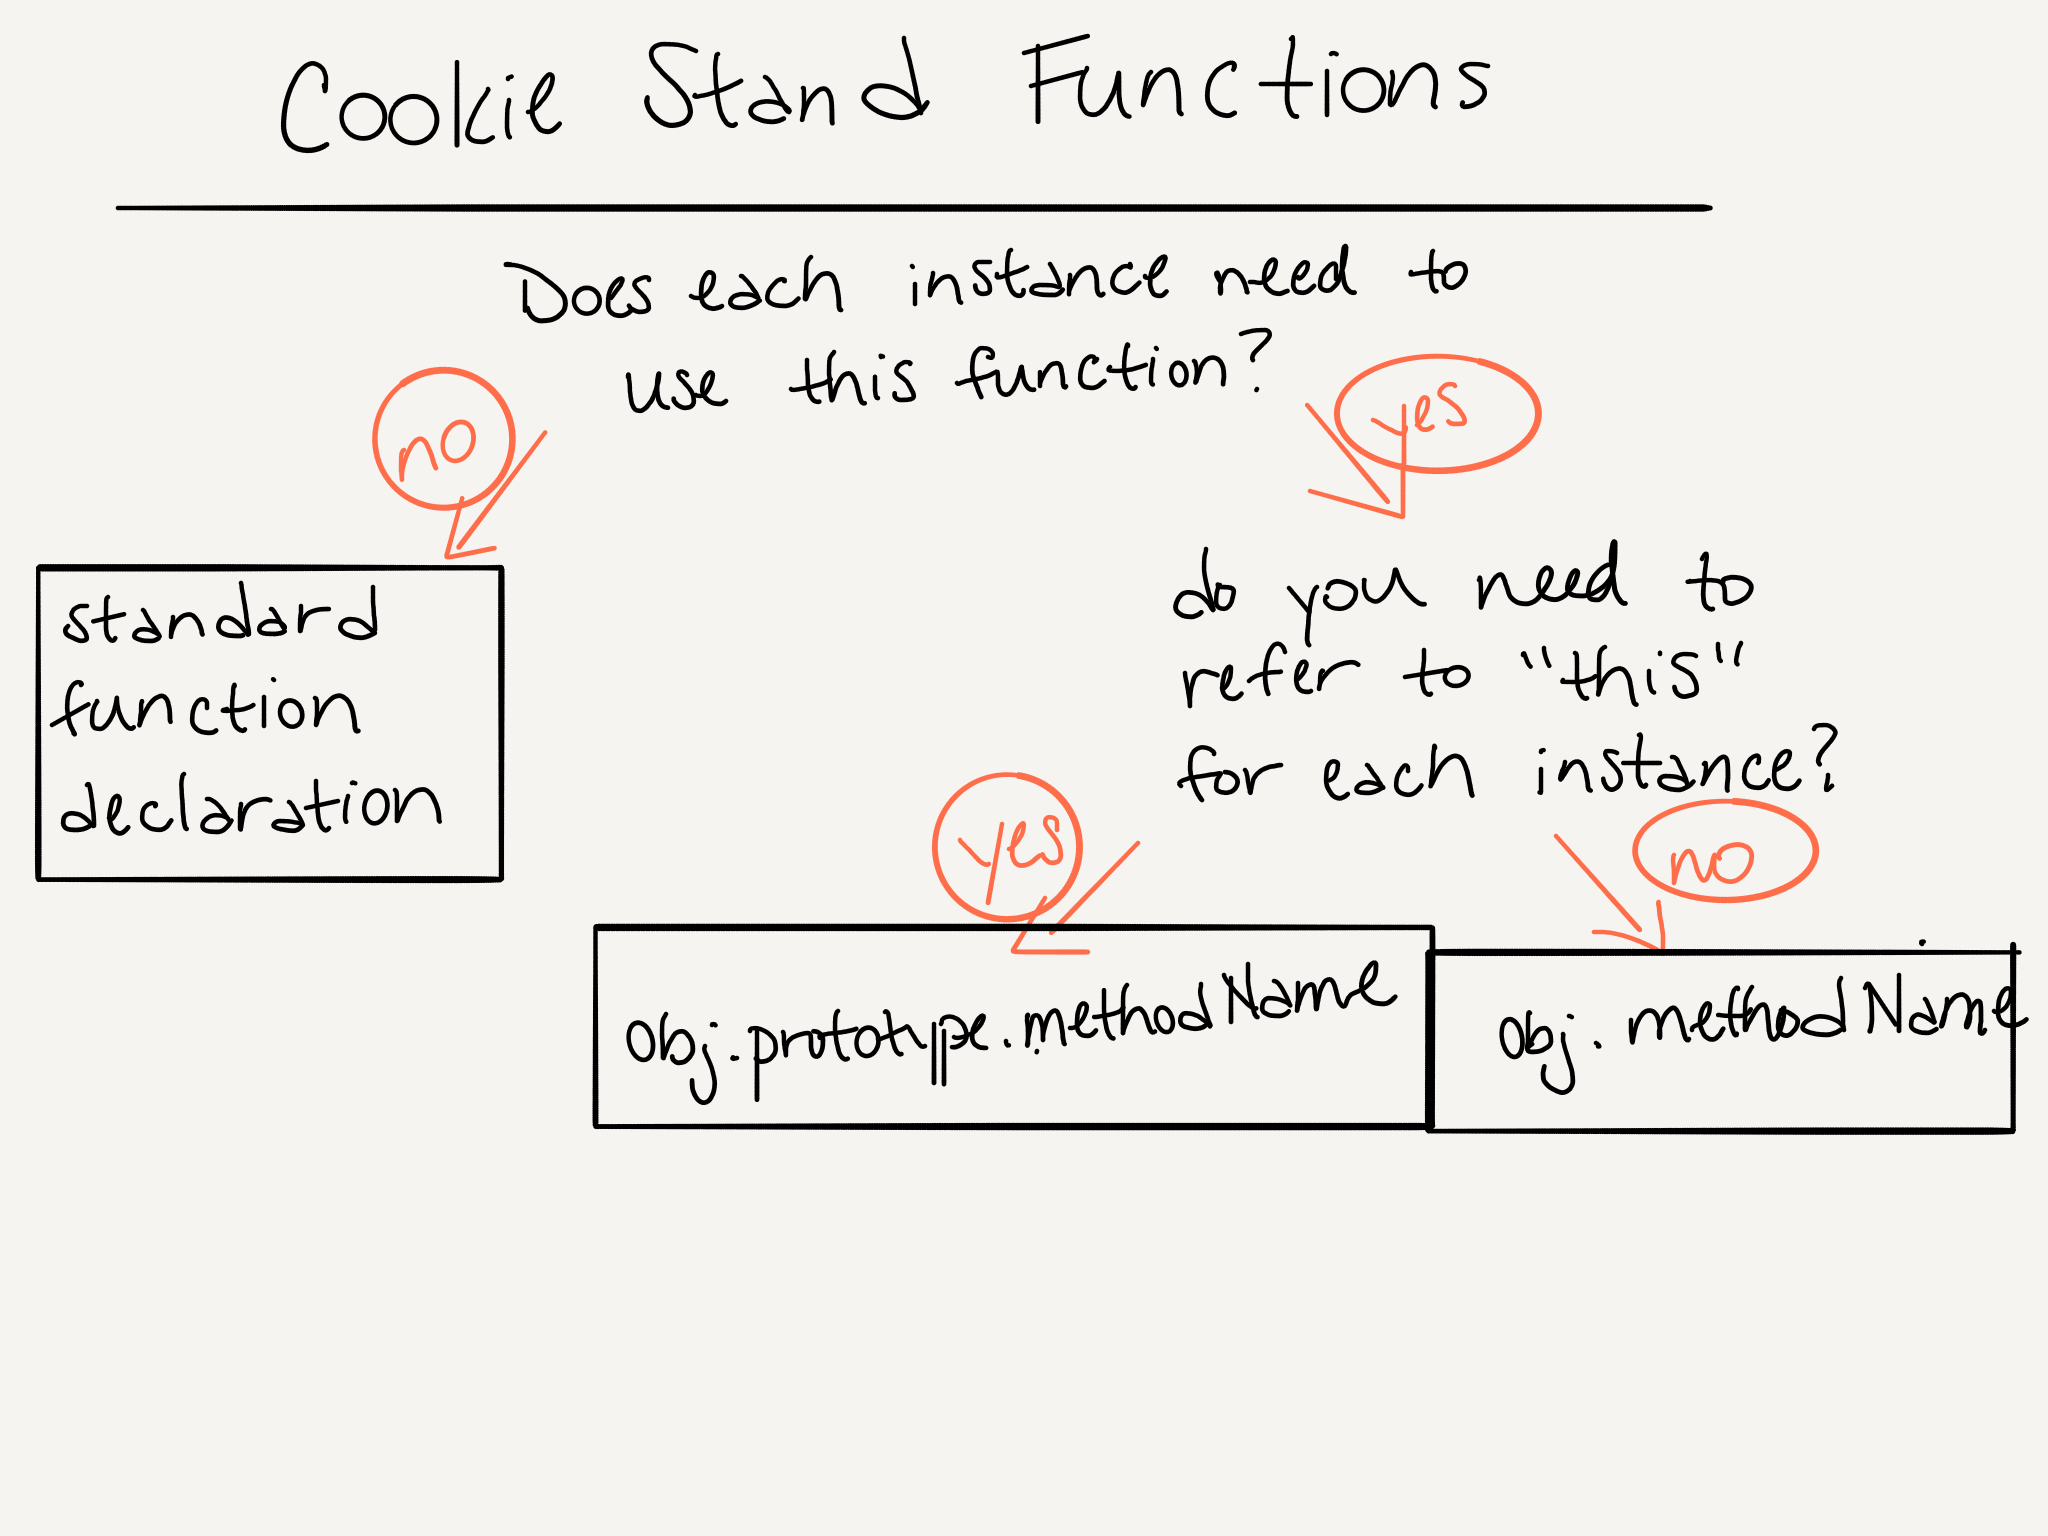 Cookie Stand Functions
Does each instance need to
use this function?
no
yes
standard
function
declaration
do you need to
refer to "this"
for each instance?
yes
no
Obj.prototype.methodName
Obj.methodName